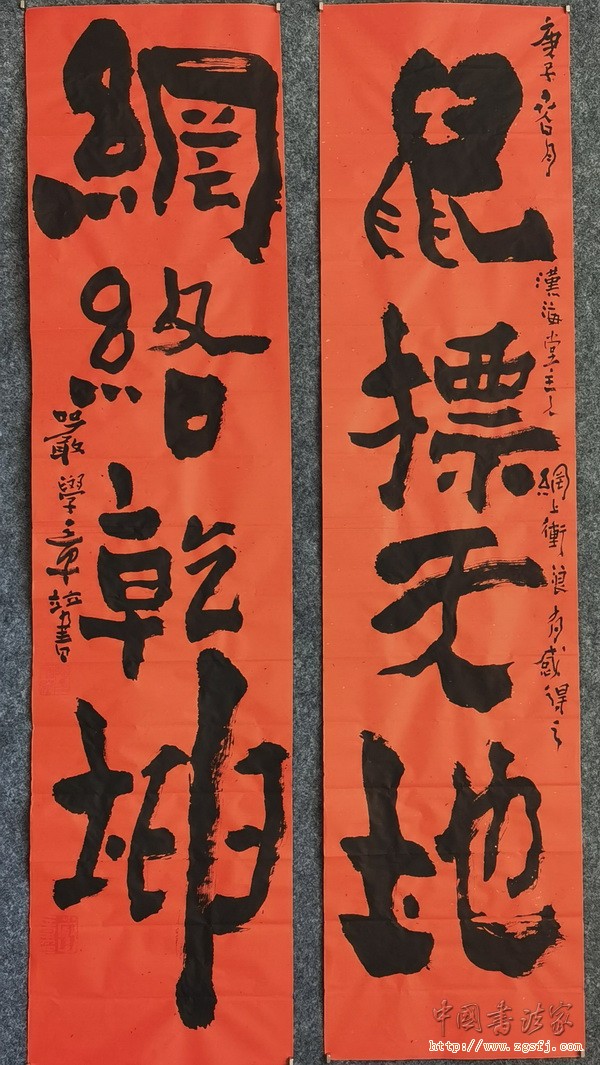 鼠標天地
庚子春月
漢海堂主人
網上衝浪有感得之
網絡乾坤
嚴學章竝書
中國書法家
http://www.zgsfj.com